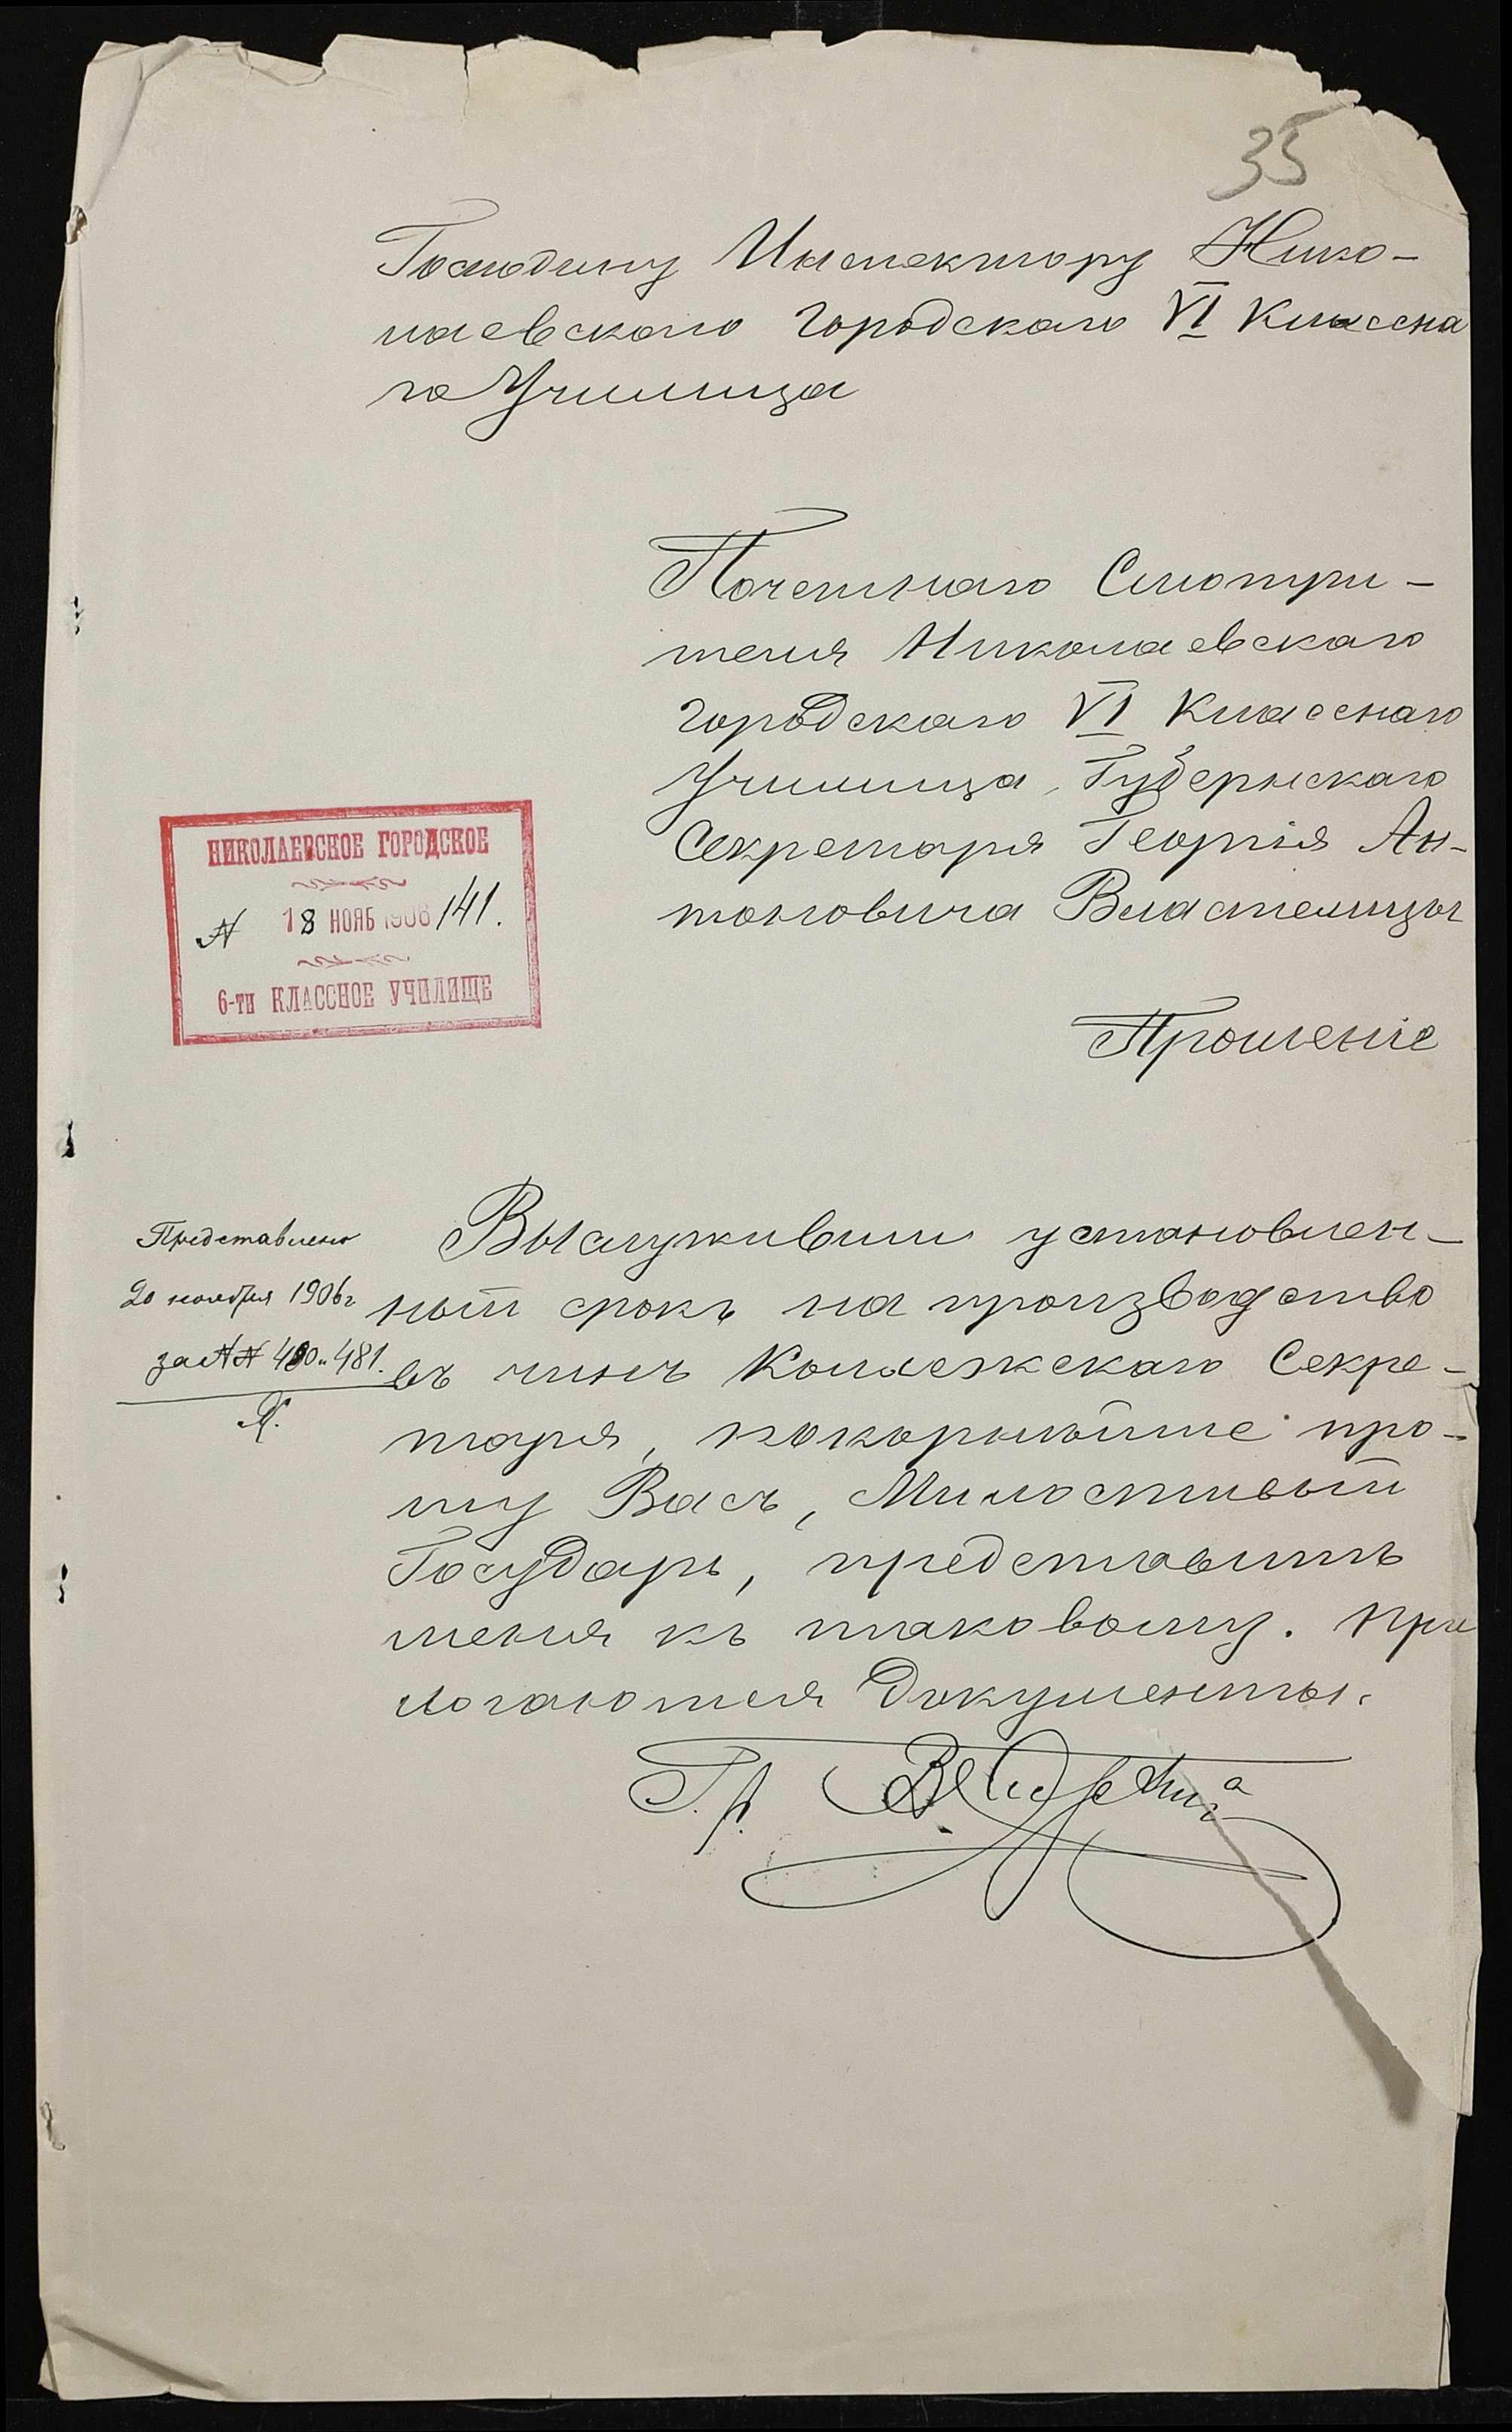 35
Господину Инспектору Нико-
лаевского Городскаго VI Классна
го Училища
Почетнаго Смотри-
теля Николаевскаго
Городскаго VI Класснаго
Училища, Губернскаго
Секретаря Георгія Ан-
тоновича Властелицы
НИКОЛАЕВСКОЕ ГОРОДСКОЕ
№ 18 НОЯБ 1906 141.
6-ти КЛАССНОЕ УЧИЛИЩЕ
Прошеніе
Представлено
20 ноября 1906 г
за №№ 480 и 481.
Выслуживши установлен-
ный срокъ на производство
въ чинъ Коллежскаго Секре-
таря, покорнѣйше про-
шу Васъ, Милостивый
Государь, представить
меня къ таковому. При
логаются документы.
Г. А.